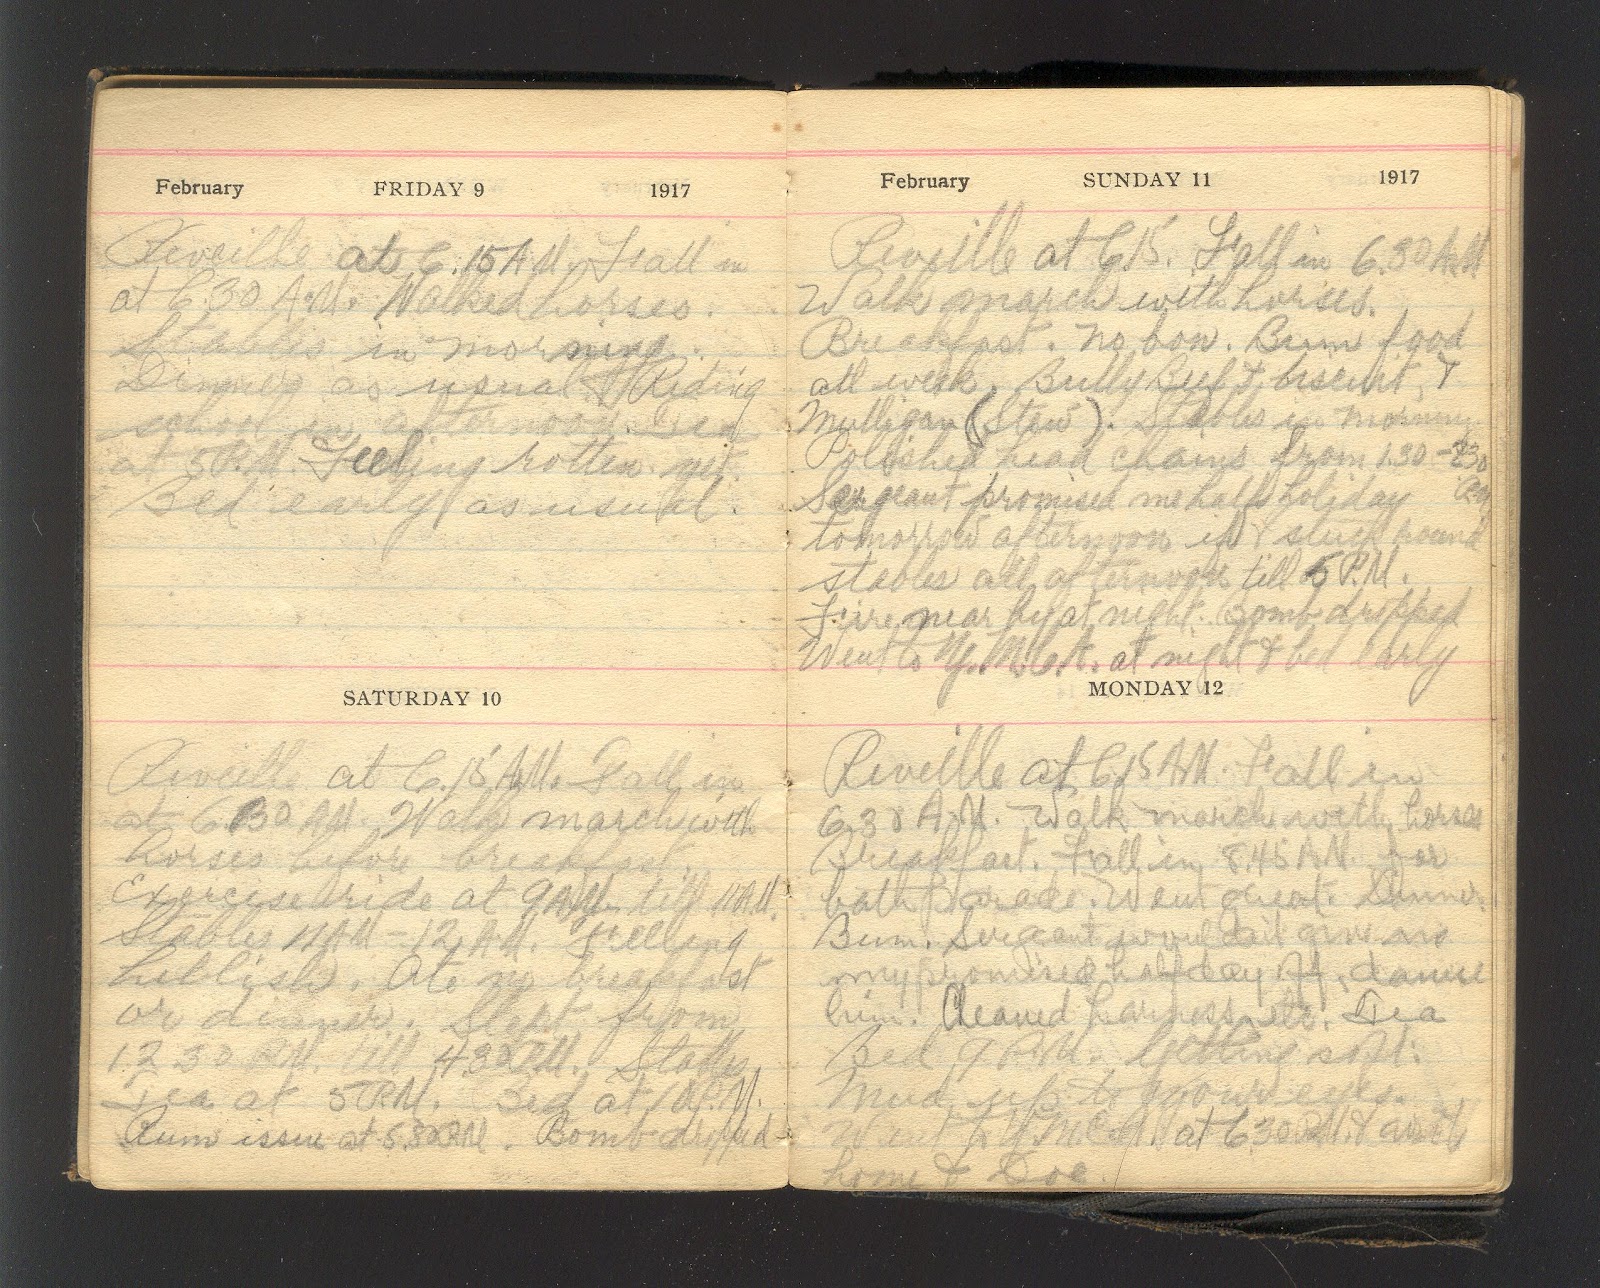 February FRIDAY 9 1917
Reveille at 6.15 A.M. Fall in
at 6.30 A.M. Walked horses.
Stables in morning.
Dinner as usual & Riding
school in afternoon. Tea
at 5 P.M. Feeling rotten.
Bed early as usual.
SATURDAY 10
Reveille at 6.15 A.M. Fall in
at 6.30 A.M. Walk march with
horses before breakfast.
Exercise ride at 9 A.M. till 11 A.M.
Stables 11 AM - 12 AM. Feeling
hellish. Ate no breakfast
or dinner. Slept from
12.30 P.M. till 4.30 P.M. Stables
Tea at 5 P.M. Bed at 10 P.M.
Rum issue at 5.30 P.M. Bomb dropped
February SUNDAY 11 1917
Reveille at 6.15. Fall in 6.30 A.M.
Walk march with horses.
Breakfast. No bon. Bum food
all week. Bully Beef & biscuit, &
Mulligan (Stew). Stables in morning
Polished head chains from 1.30 - 2.30
P.M.
Sergeant promised me half holiday
tomorrow afternoon if I stuck round
stables all afternoon till 5 P.M.
Fire near by at night. Bomb dropped
Went to Y.M.C.A. at night & bed early
MONDAY 12
Reveille at 6.15 A.M. Fall in
6.30 A.M. Walk march with horses
Breakfast. Fall in 8.45 A.M. for
bath parade. Went great. Dinner.
Bum. Sergeant wouldnt give me
my promised half day off, damn
him. Cleaned harness etc. Tea
Bed 9 P.M. Getting soft.
Mud up to your eyes.
Went to Y.M.C.A. at 6.30 P.M. &
home & Doe.